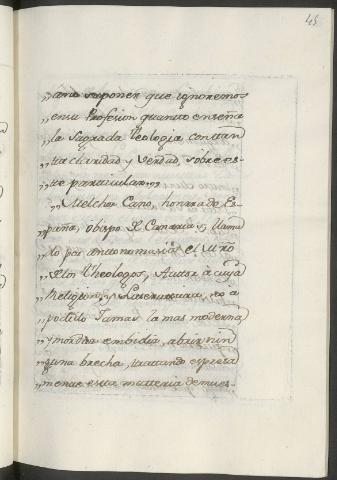 45
„ tamo suponer que ignoremos
„ en su Profesion quanto enseña
„ la Sagrada Theologia con tan
„ ta claridad y verdad, sobre es-
„ te particular „
„ Melchor Cano, honrra de Es
„ paña, obispo de Canaria y llama
„ do por antonomasia el
„ de los Theologos, Autor à cuya
„ Religion, y Literatura, no à
„ podido Jamas la mas moderna
„ y mordaz embidia, abrir nin
„ guna brecha, trattando espresa
„ mente esta matteria demues-